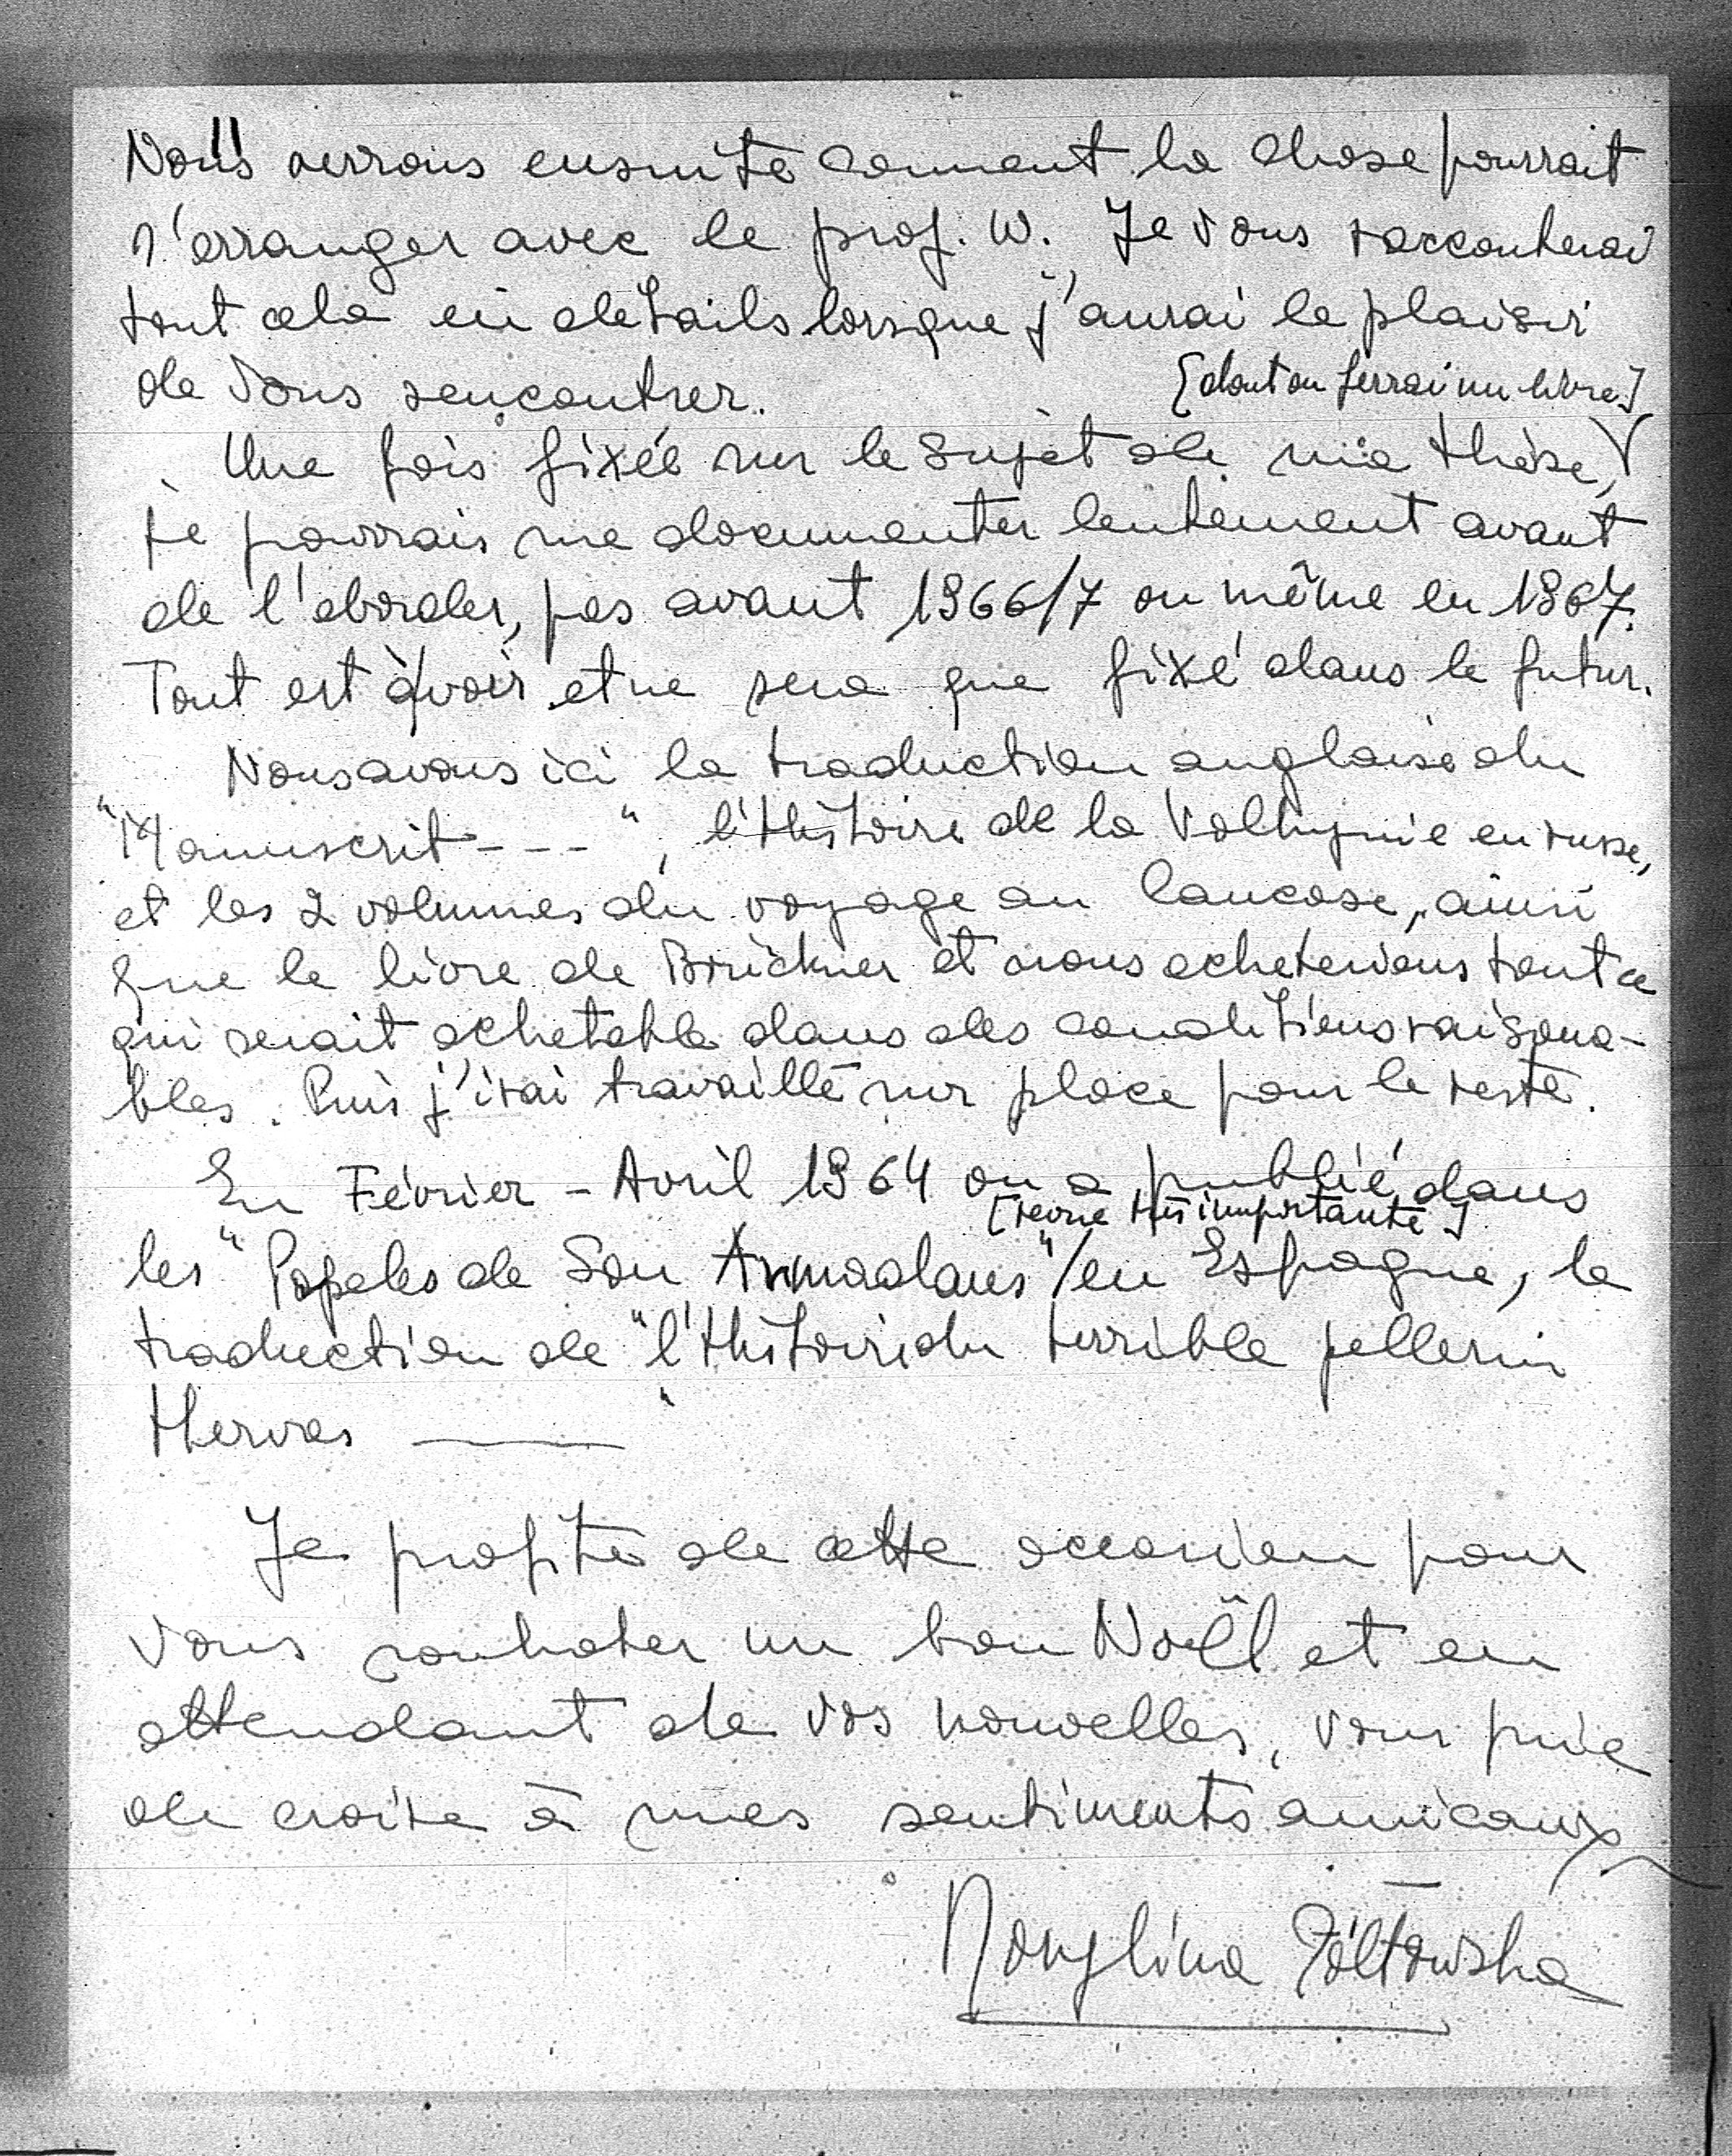 Nous verrons ensuite comment la chose pourrait
s'arranger avec le prof. W. Je vous racconterai
tout cela en détails lorsque j'aurai le plaisir
de vous rencontrer.
[dont on ferrai un livre]
Une fois fixée sur le sujet de ma thèse,
je pourrais me documenter lentement avant
de l'aborder, pas avant 1966/7 ou même en 1967.
Tout est à voir et ne sera que fixé dans le futur.
Nous avons ici la traduction anglaise du
"Manuscrit - - - ", l'Histoire de la Volhynie en russe,
et les 2 volumes du voyage au Caucase, ainsi
que le livre de Brückner et nous acheterions tout ce
qui serait achetable dans des conditions raisona-
bles. Puis j'irai travaillé sur place pour le reste.
En Février - Avril 1964 on a publié dans
[revue très importante]
les "Papeles de Son Armadans" en Espagne, la
traduction de "l'Histoire du terrible pellerin
Hervas"
Je profite de cette occasion pour
vous souhater un bon Noël et en
attendant de vos nouvelles, vous prie
de croire à mes sentiments amicaux
Zóltowska